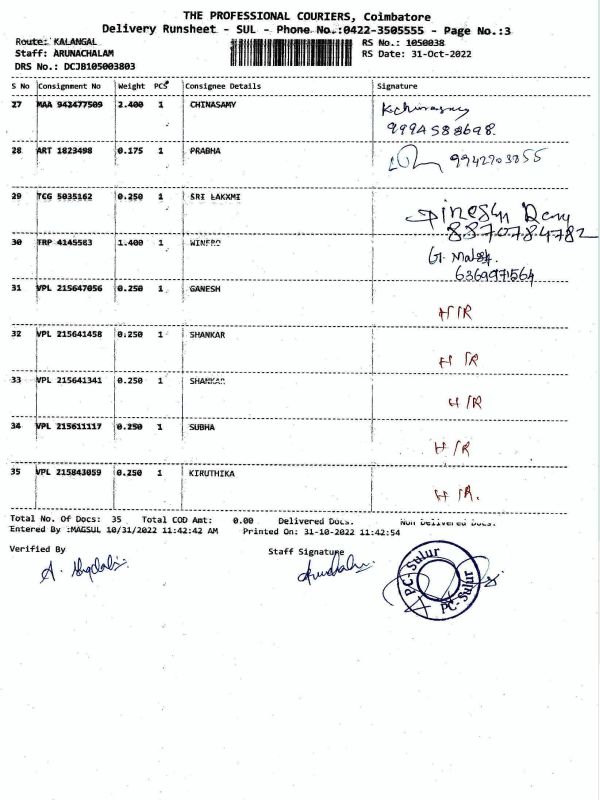 THE PROFESSIONAL COURIERS, Coimbatore
Delivery Runsheet - SUL - Phone No.:0422-3505555 - Page No.:3
Route: KALANGAL RS No.: 1050038
Staff: ARUNACHALAM RS Date: 31-Oct-2022
DRS No.: DCJB105003803
S No Consignment No Weight PCS Consignee Details Signature
27 MAA 943477509 2.400 1 CHINASAMY
9994588698.
28 ART 1823498 0.175 1 PRABHA 9942703855
29 TCG 5035162 0.250 1 SRI LAKXMI
8870784782
30 TRP 4145583 1.400 1 WINFRO
6369971564
31 VPL 215647056 0.250 1 GANESH H/R
32 VPL 215641458 0.250 1 SHANKAR H/R
33 VPL 215641341 0.250 1 SHANKAR H/R
34 VPL 215611117 0.250 1 SUBHA H/R
35 VPL 215843059 0.250 1 KIRUTHIKA H/R.
Total No. Of Docs: 35 Total COD Amt: 0.00 Delivered Docs. Non Delivered Docs.
Entered By :MAGSUL 10/31/2022 11:42:42 AM Printed On: 31-10-2022 11:42:54
Verified By Staff Signature
PC-Sulur
PC-Sulur